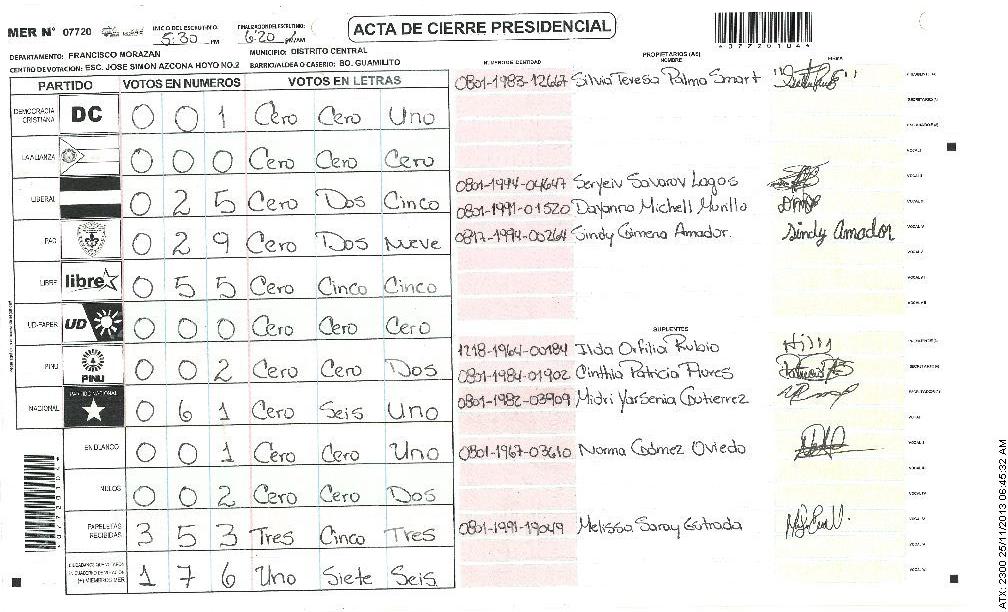 MER N° 07720 INICIO DEL ESCRUTINIO: 5:30 PM FINALIZACION DEL ESCRUTINIO: 6:20
ACTA DE CIERRE PRESIDENCIAL
4077201044
DEPARTAMENTO: FRANCISCO MORAZAN MUNICIPIO: DISTRITO CENTRAL
CENTRO DE VOTACION: ESC. JOSE SIMON AZCONA HOYO NO.2 BARRIO/ALDEA O CASERIO: BO. GUAMILITO
NUMERO DE IDENTIDAD PROPIETARIOS (AS) NOMBRE FIRMA
PARTIDO VOTOS EN NUMEROS VOTOS EN LETRAS
DEMOCRACIA CRISTIANA DC 0 0 1 Cero Cero Uno
LA ALIANZA 0 0 0 Cero Cero Cero
LIBERAL 0 2 5 Cero Dos Cinco
PAC 0 2 9 Cero Dos Nueve
LIBRE libre 0 5 5 Cero Cinco Cinco
UD-FAPER UD 0 0 0 Cero Cero Cero
PINU PINU 0 0 2 Cero Cero Dos
NACIONAL PARTIDO NACIONAL 0 6 1 Cero Seis Uno
EN BLANCO 0 0 1 Cero Cero Uno
NULOS 0 0 2 Cero Cero Dos
PAPELETAS RECIBIDAS 3 5 3 Tres Cinco Tres
1 7 6 Uno Siete Seis
0801-1983-12667 Silvia Teresa Palma Smart
0801-1994-04647 Seryein Savarov Lagos
0801-1991-01520 Dayanna Michell Murillo
0817-1994-00264 Sindy Gimena Amador. Sindy Amador
SUPLENTES
1218-1964-00184 Ilda Orfilia Rubio
0801-1984-01902 Cinthia Patricia Flores
0801-1982-03909 Midri Yarsenia Gutierrez
0801-1967-03610 Norma Gómez Oviedo
0801-1991-19049 Melissa Saray Estrada
ATX: 2300 25/11/2013 06:45:32 AM